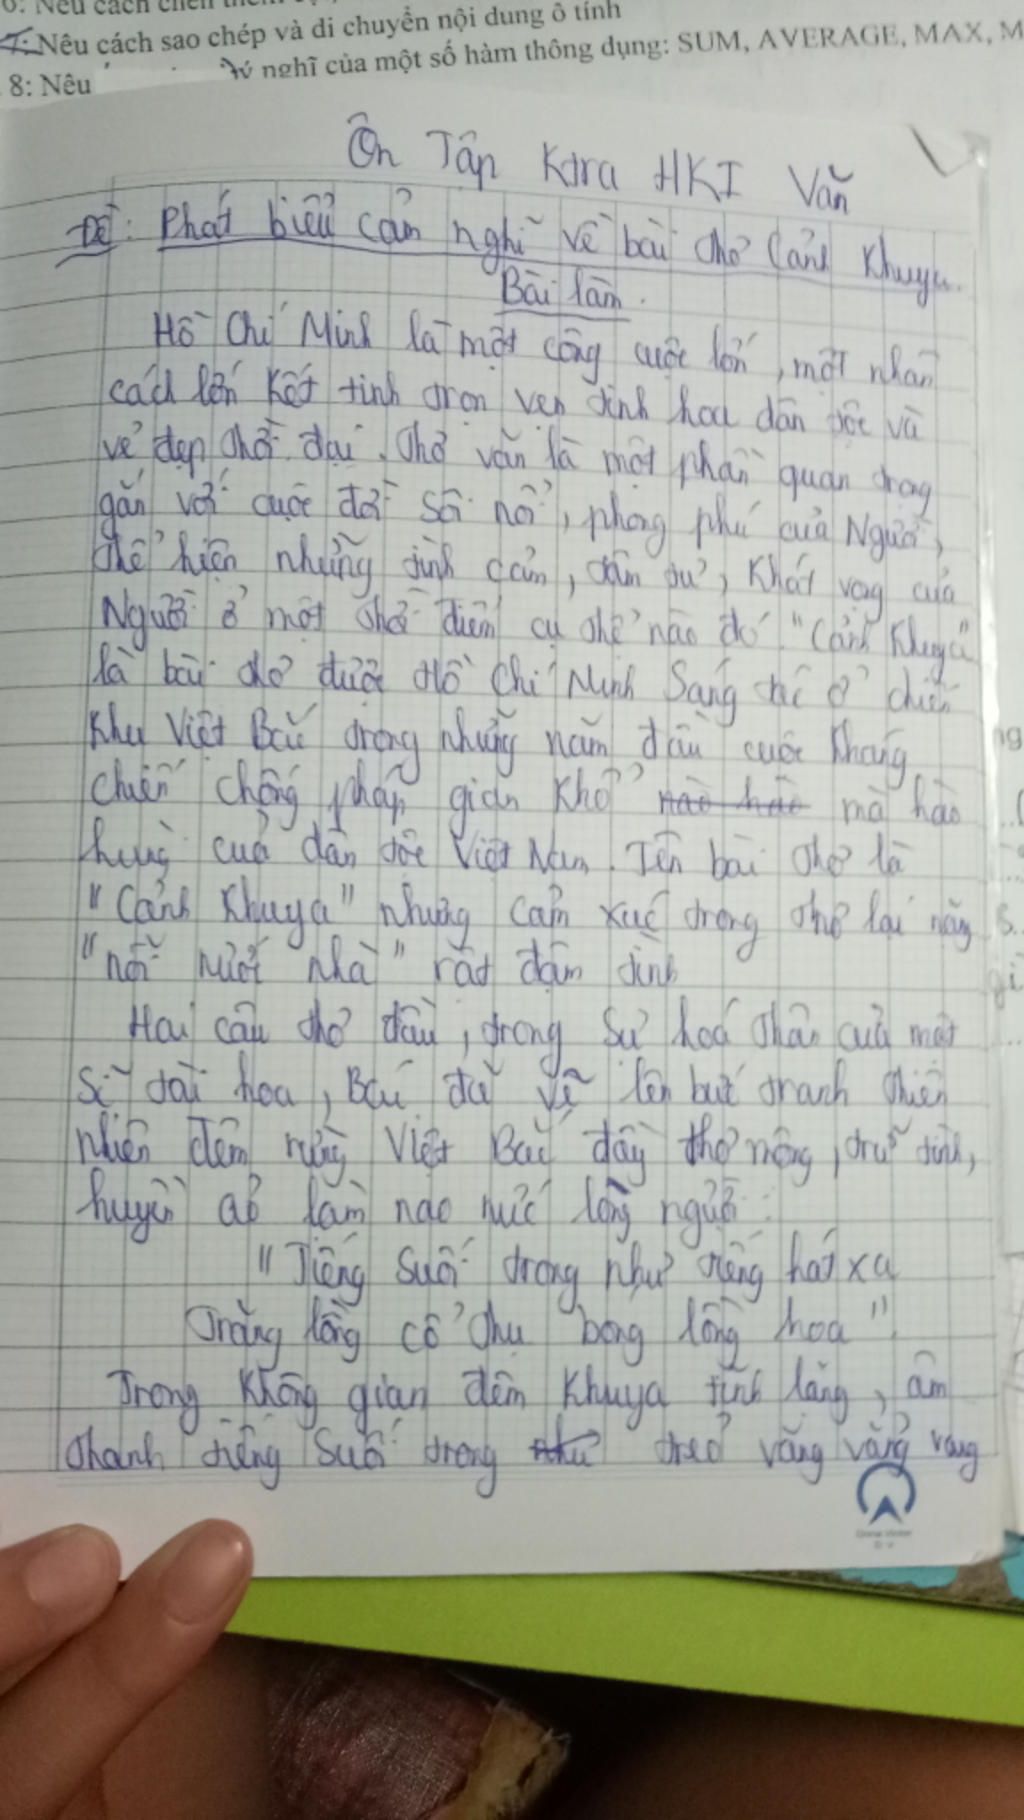 7: Nêu cách sao chép và di chuyển nội dung ô tính
8: Nêu ý nghĩ của một số hàm thông dụng: SUM, AVERAGE, MAX, M
Ôn Tập Ktra HKI Văn
Đề: Phát biểu cảm nghĩ về bài thơ Cảnh Khuya.
Bài làm.
Hồ Chí Minh là một cuộc lớn, một nhân
cách lớn kết tinh trọn vẹn tinh hoa dân tộc và
vẻ đẹp thời đại. Thơ văn là một phần quan trọng
gắn với cuộc đời sôi nổi, phong phú của Người,
thể hiện những tình cảm, tâm tư, khát vọng của
Người ở một thời điểm cụ thể nào đó. "Cảnh Khuya"
là bài thơ được Hồ Chí Minh Sáng tác ở chiến
khu Việt Bắc trong những năm đầu cuộc kháng
chiến chống pháp gian khổ nào hào mà hào
hùng của dân tộc Việt Nam. Tên bài thơ là
"Cảnh Khuya" nhưng cảm xúc trong thơ lại nặng
"nỗi nước nhà" rất đậm tình
Hai câu thơ đầu, trong sự hoá thân của một
sĩ tài hoa, Bác đã vẽ lên bức tranh thiên
nhiên đêm rừng Việt Bắc đầy thơ mộng, trữ tình,
huyền ảo làm nao nức lòng người:
"Tiếng suối trong như tiếng hát xa
Trăng lồng cổ thụ bóng lồng hoa"
Trong không gian đêm khuya tĩnh lặng, âm
thanh tiếng suối trong như treo văng vẳng vang